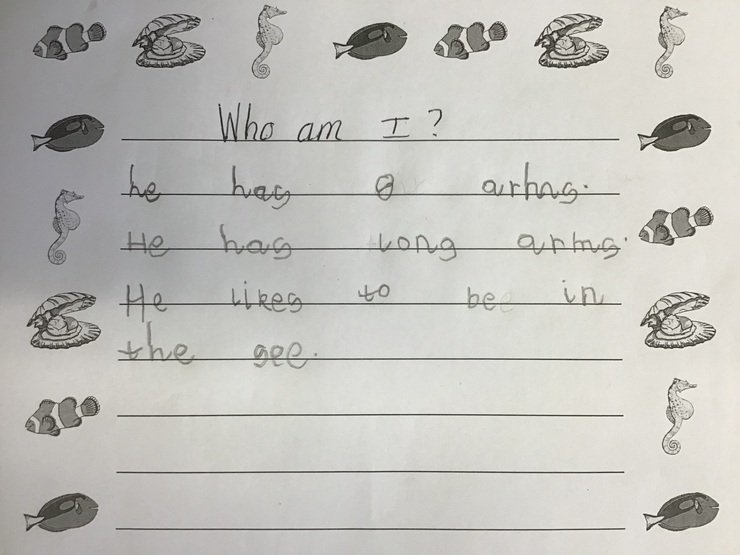 Who am I?
he has 8 arhns.
He has long arhns.
He likes to be in
the see.